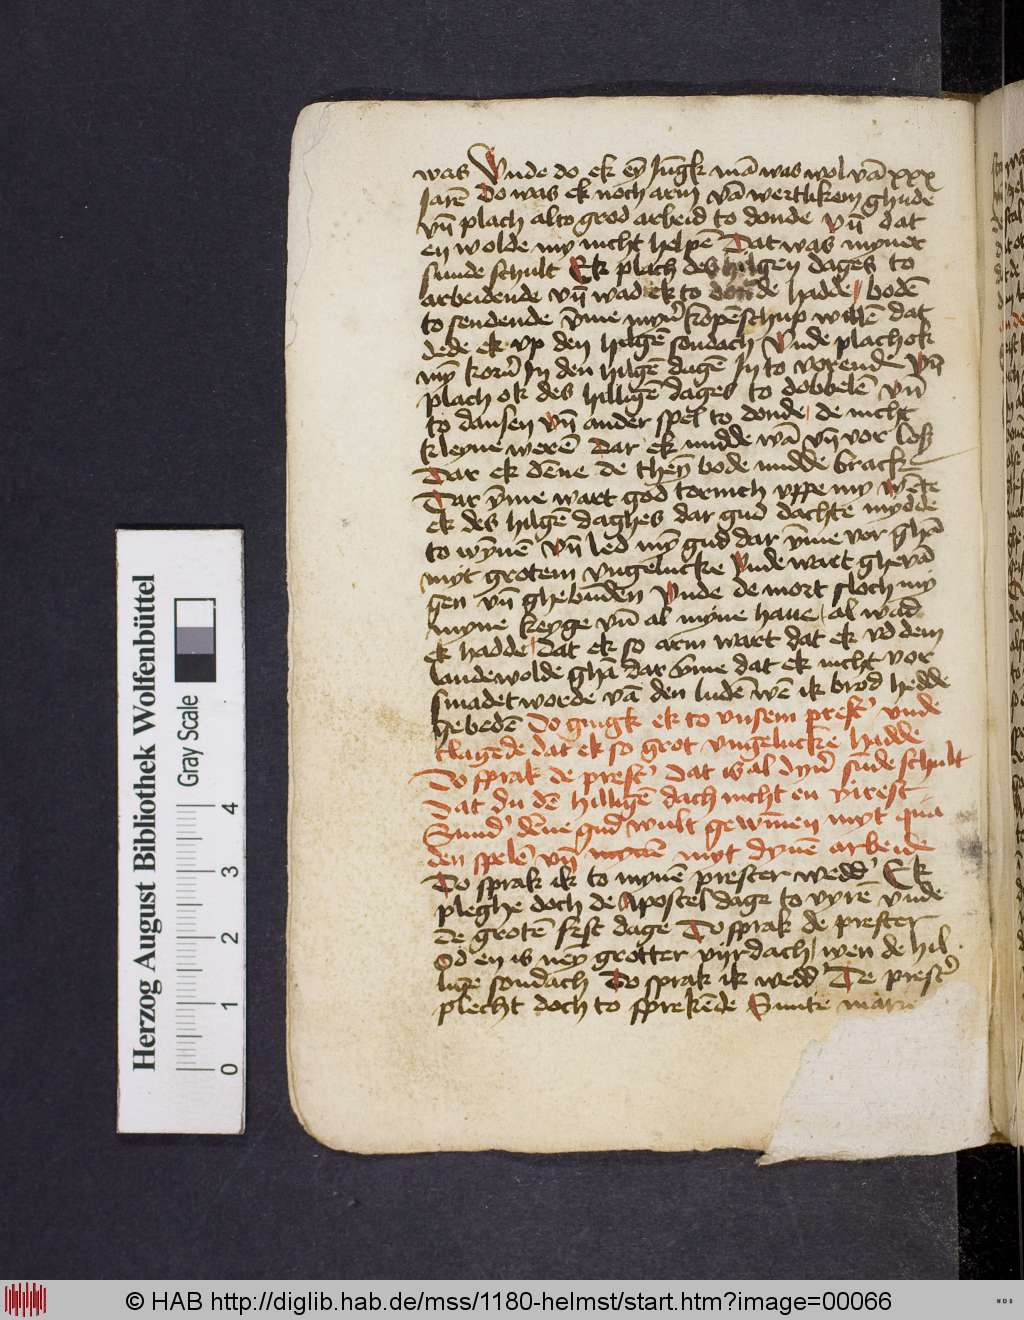 was Vnde do ek eȳ Jūgk mā was wol vā xxx
Jarē Do was ek noch arm vā wertlikem ghude
vn̄ plach alto grod arbeid to donde vn̄ dat
en wolde my nicht helpē Dat was myner
sunde schult Ek plach des hilgen dages to
arbeidende vn̄ wad ek to donde hadde bodē
to sendende v̄me myn̄ kopēschup willē dat
dede ek vp den hilgē sondach Vnde plach ok
my korn̄ In den hilgē dagē In to vorende Vn̄
plach ok des hilligē dages to dobbelē vn̄
to dansen vn̄ ander spel to donde de nicht
kleyne werē Dar ek mudde wā vn̄ vor los
Dar ek dēne de theȳ bode mudde brack
Dar v̄me wart god tornich vppe my wēte
ek des hilgē daghes dar gud dachte mydde
to wȳnē vn̄ led my gud dar v̄me vor ghā
myt grotem vngelucke Vnde wart ghevā
gen vn̄ ghebūden Vnde de mort floch my
myne keyge vn̄ al myne haue al wad
ek hadde Dat ek so arm wart dat ek vd dem
lande wolde ghā dar v̄me dat ek nicht vor
smadet worde vā den ludē wē ik brod hedde
hebedē Do gingk ek to vnsem prest' vnde
clagede dat ek so grot vngelucke hadde
Do sprak de prest' dat is al dyn̄ sūde schult
Dat du dē hilligē dach nicht en virest
Sund' dēne gud wult gewinen myt qua
den spelē vn̄ myt dynē arbeide
Do sprak ik to mynē prester wedd' Ek
pleghe doch de Apostel dage to vyrē vnde
De grotē fest dage Do sprak de prester
Od en is neȳ grotter vyrdach wen de hil
lige sondach Do sprak ik wedd' De prest'
plecht doch to sprekēde Sunte marie
Herzog August Bibliothek Wolfenbüttel
Gray Scale
0 1 2 3 4
© HAB http://diglib.hab.de/mss/1180-helmst/start.htm?image=00066